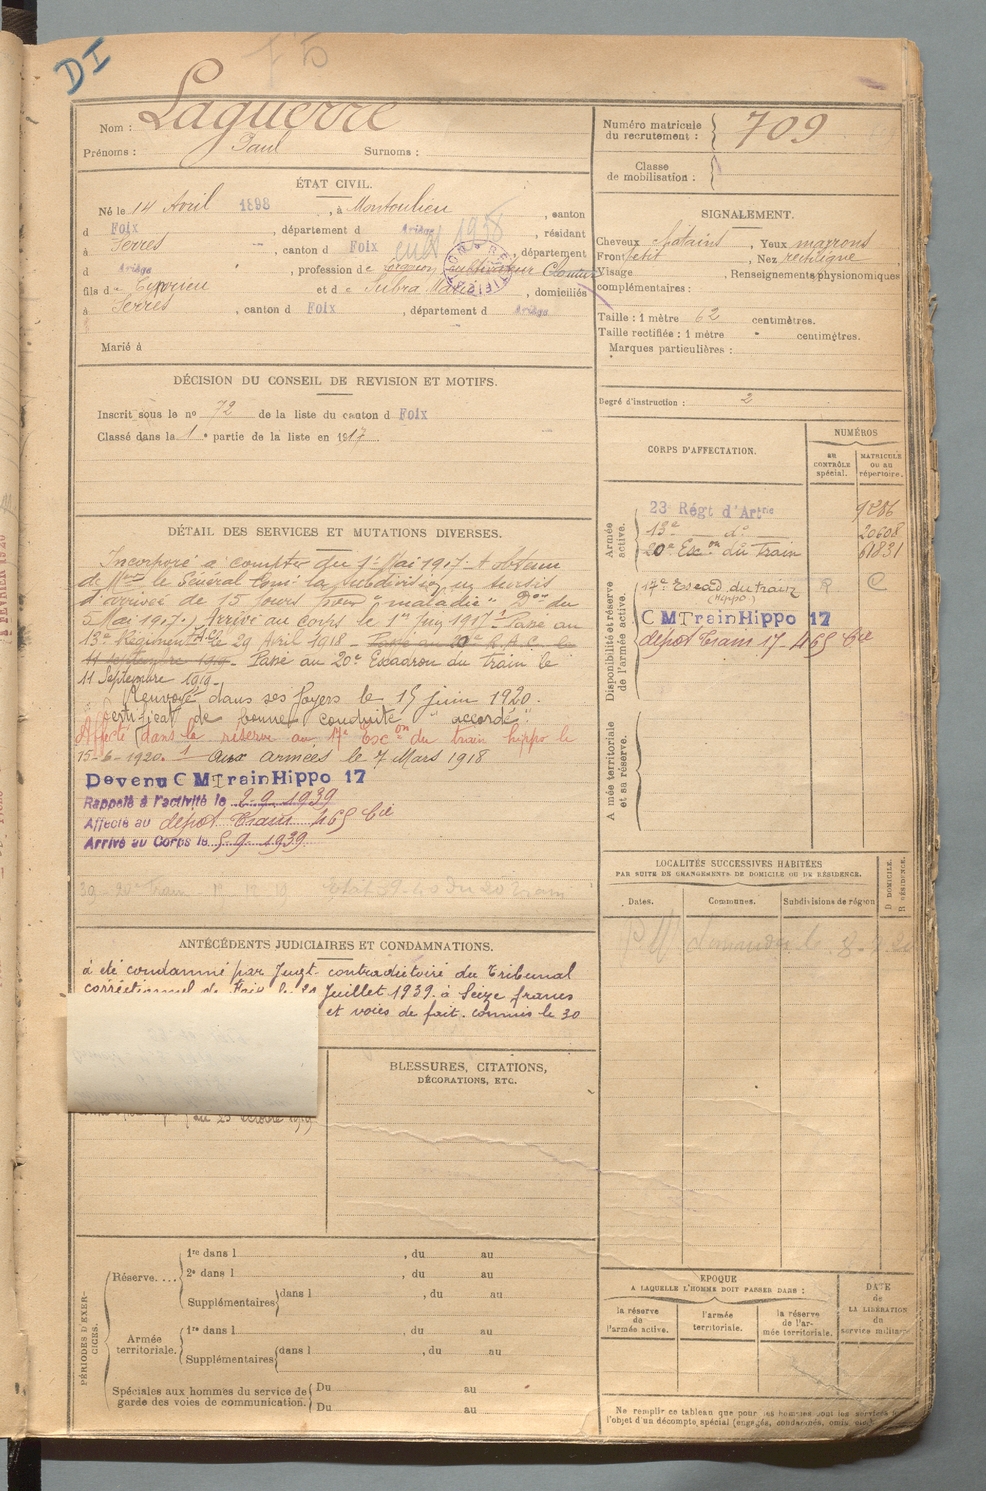 DI
Nom : Laguerre
Prénoms : Paul Surnoms :
Numéro matricule du recrutement : 709
Classe de mobilisation :
ÉTAT CIVIL.
Né le 14 Avril 1898, à Montoulieu, canton
d Foix, département d Ariège, résidant
à Serres, canton d Foix, département
d Ariège, profession de cultivateur
fils d et de Subra Marie, domiciliés
à Serres, canton d Foix, département d Ariège
Marié à
SIGNALEMENT.
Cheveux chatains, Yeux marrons
Front petit, Nez rectiligne
Visage, Renseignements physionomiques
complémentaires :
Taille : 1 mètre 62 centimètres.
Taille rectifiée : 1 mètre " centimètres.
Marques particulières :
Degré d'instruction : 2
DÉCISION DU CONSEIL DE REVISION ET MOTIFS.
Inscrit sous le no 72 de la liste du canton d Foix
Classé dans la 1e partie de la liste en 1917
DÉTAIL DES SERVICES ET MUTATIONS DIVERSES.
Incorporé à compter du 1er Mai 1917. A obtenu
de Mr le Général Com: la subdivision un sursis
d'arrivée de 15 jours pour "maladie" Don du
5 Mai 1917.) Arrivé au corps le 1er 1917. Passé au
13e Régiment d'Aie le 29 Avril 1918 - Passé au 20e R.A.C. le
11 septembre 1919 - Passé au 20e Escadron du train le
11 Septembre 1919.
Renvoyé dans ses foyers le 15 juin 1920.
Certificat de bonne conduite "accordé".
Affecté dans la réserve au 17e Escon du train hippo le
15-6-1920. Aux armées le 7 Mars 1918
Devenu C M Train Hippo 17
Rappelé à l'activité le 2.9.1939
Affecté au dépôt Train 465 Cie
Arrivé au Corps le 5.9.1939
CORPS D'AFFECTATION.
NUMÉROS
AU CONTRÔLE spécial.
MATRICULE OU AU répertoire.
Armée active.
23 Régt d'Artrie 9286
13e do 20608
20e Escon du train 61831
Disponibilité et réserve de l'armée active.
17e Escad. du train (Hippo) R C
C M Train Hippo 17
dépot Train 17 - 465 Cie
Armée territoriale et sa réserve.
LOCALITÉS SUCCESSIVES HABITÉES
PAR SUITE DE CHANGEMENTS DE DOMICILE OU DE RÉSIDENCE.
Dates. Communes. Subdivisions de région
D DOMICILE. R RÉSIDENCE.
ANTÉCÉDENTS JUDICIAIRES ET CONDAMNATIONS.
à été condamné par Jugt. contradictoire du Tribunal
correctionnel de Foix le 21 Juillet 1939 à Seize francs
et voies de fait. commis le 30
du 25 octobre 1919
BLESSURES, CITATIONS,
DÉCORATIONS, ETC.
PÉRIODES D'EXERCICES.
Réserve....
1re dans l , du au
2e dans l , du au
Supplémentaires dans l , du au
Armée territoriale.
1re dans l , du au
Supplémentaires dans l , du au
Spéciales aux hommes du service de garde des voies de communication.
Du au
Du au
EPOQUE
A LAQUELLE L'HOMME DOIT PASSER DANS :
la réserve de l'armée active.
l'armée territoriale.
la réserve de l'armée territoriale.
DATE de LA LIBÉRATION du service militaire
Ne remplir ce tableau que pour les hommes dont les services
l'objet d'un décompte spécial (engagés, condamnés, omis,